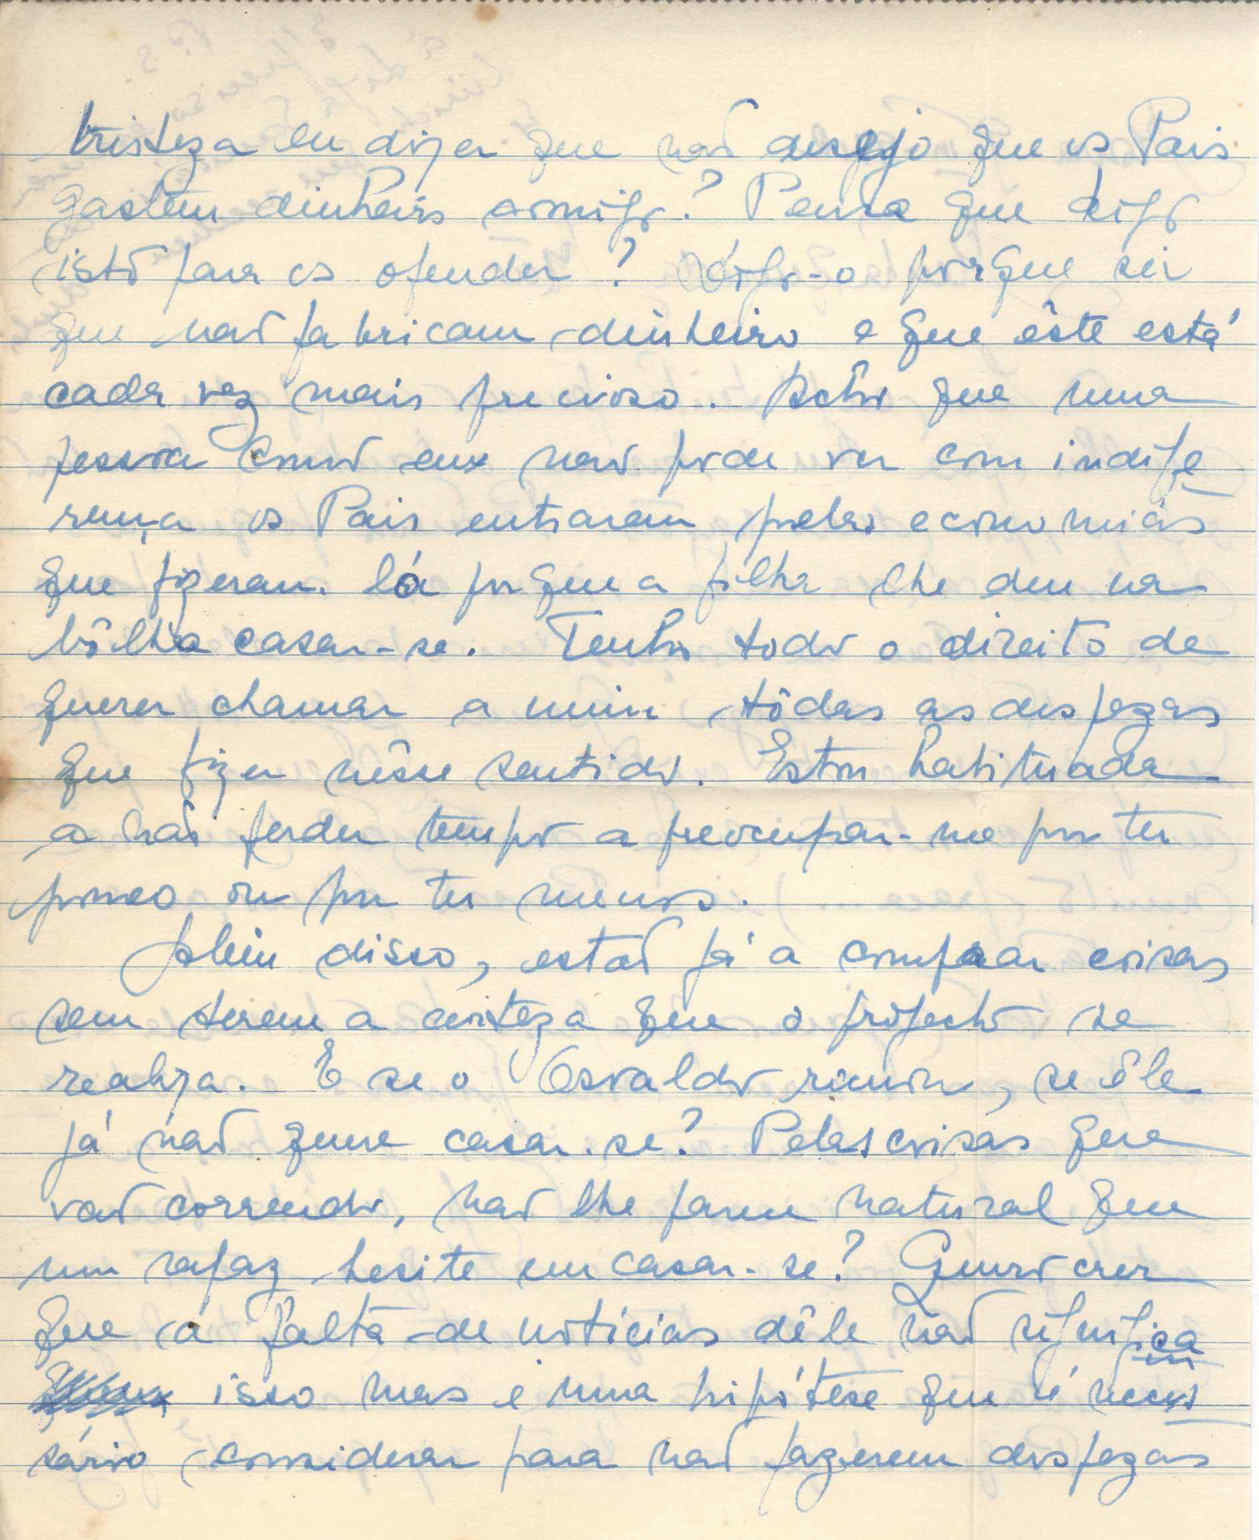 tristeza eu dizer que não desejo que os Pais
gastem dinheiro comigo? Pensa que digo
isto para os ofender? Digo-o porque sei
que não fabricam dinheiro e que êste está
cada vez mais precioso. Acho que uma
pessoa como eu não pode ver com indife
rença os Pais entrarem pelas economias
que fizeram lá porque a filha lhe deu na
bôlha casar-se. Tenho todo o direito de
querer chamar a mim tôdas as despezas
que fizer nêsse sentido. Estou habituada
a não perder tempo a preocupar-me por ter
pouco ou por ter menos.
Além disso, estão já a comprar coisas
sem terem a certeza que o projecto se
realiza. E se o Osvaldo , se êle
já não quere casar-se? Pelas coisas que
vão correndo, não lhe parece natural que
um rapaz hesite em casar-se? Quero crer
que a falta de notícias dêle não significa
isso mas é uma hipótese que é neces
sário considerar para não fazerem despezas